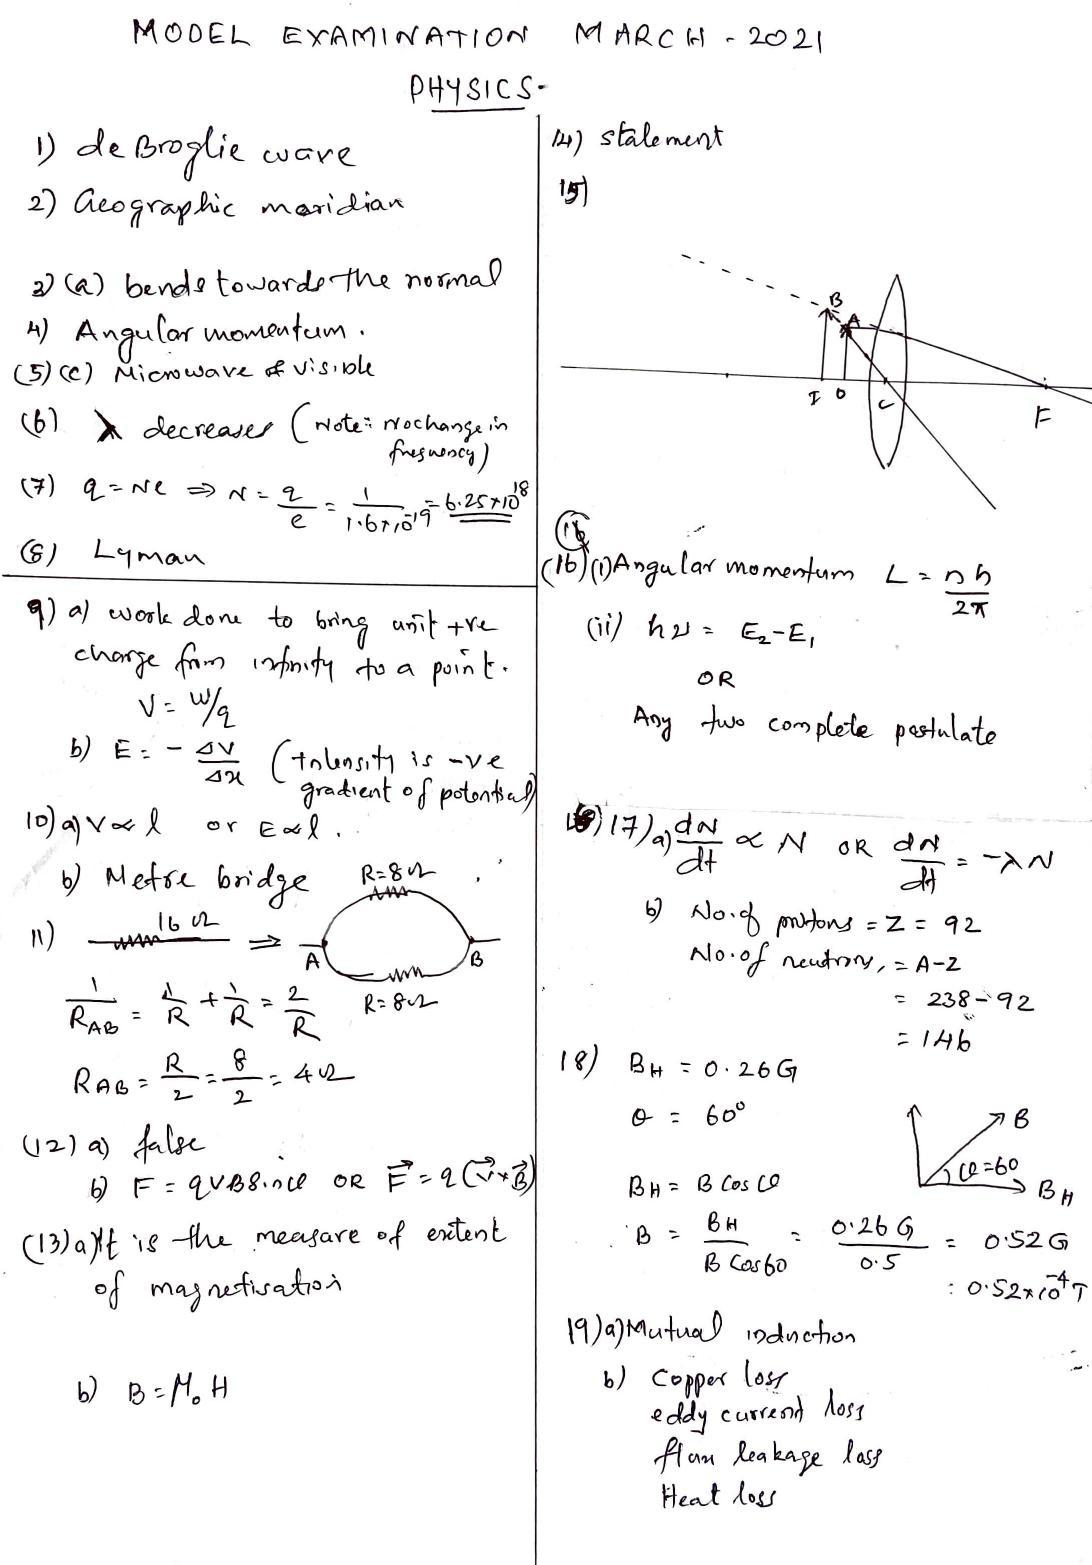 MODEL EXAMINATION MARCH - 2021
PHYSICS-
1) de Broglie wave
2) Geographic maridian
3) (a) bends towards the normal
4) Angular momentum.
(5) (c) Microwave & visible
(6) λ decreases (Note: No change in
frequency)
(7) q = Ne ⇒ N = q/e = 1/1.6×10^-19 = 6.25×10^18
(8) Lyman
9) a) work done to bring unit +ve
charge from infinity to a point.
V = W/q
b) E = - ΔV/Δx (Intensity is -ve
gradient of potential)
10) a) V ∝ l or E ∝ l.
b) Metre bridge
R=8Ω
11) 16Ω ⇒ A B
R=8Ω
1/R_AB = 1/R + 1/R = 2/R
R_AB = R/2 = 8/2 = 4Ω
(12) a) false
b) F = qVBsinθ OR F⃗ = q(V⃗×B⃗)
(13) a) It is the measure of extent
of magnetisation
b) B = M₀H
14) statement
15)
B
A
I O C F
16
(16) (i) Angular momentum L = nh/2π
(ii) hν = E₂-E₁
OR
Any two complete postulate
17) a) dN/dt ∝ N OR dN/dt = -λN
b) No. of protons = Z = 92
No. of neutrons, = A-Z
= 238-92
= 146
18) B_H = 0.26G
θ = 60°
B
θ=60
B_H
B_H = B Cos θ
B = B_H/B Cos60 = 0.26G/0.5 = 0.52G
: 0.52×10^-4 T
19) a) Mutual induction
b) Copper loss
eddy current loss
flux leakage loss
Heat loss